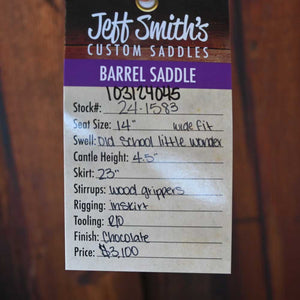 Jeff Smith's
CUSTOM SADDLES
BARREL SADDLE
103124045
Stock#: 24-1583
Seat Size: 14" wide fit
Swell: Old School little wonder
Cantle Height: 4.5"
Skirt: 23"
Stirrups: wood grippers
Rigging: Inskirt
Tooling: R/O
Finish: Chocolate
Price: $3,100